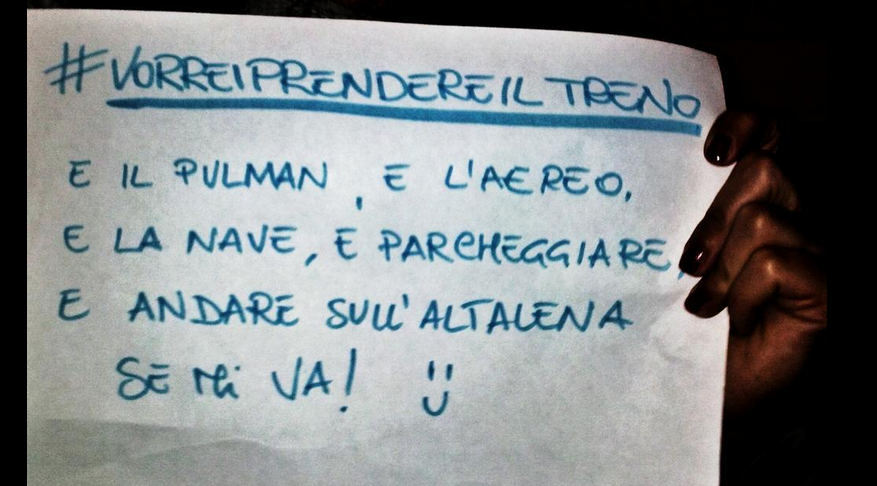 #VORREIPRENDEREILTRENO
E IL PULMAN, E L'AEREO,
E LA NAVE, E PARCHEGGIARE,
E ANDARE SULL'ALTALENA
SE Mi VA! :)